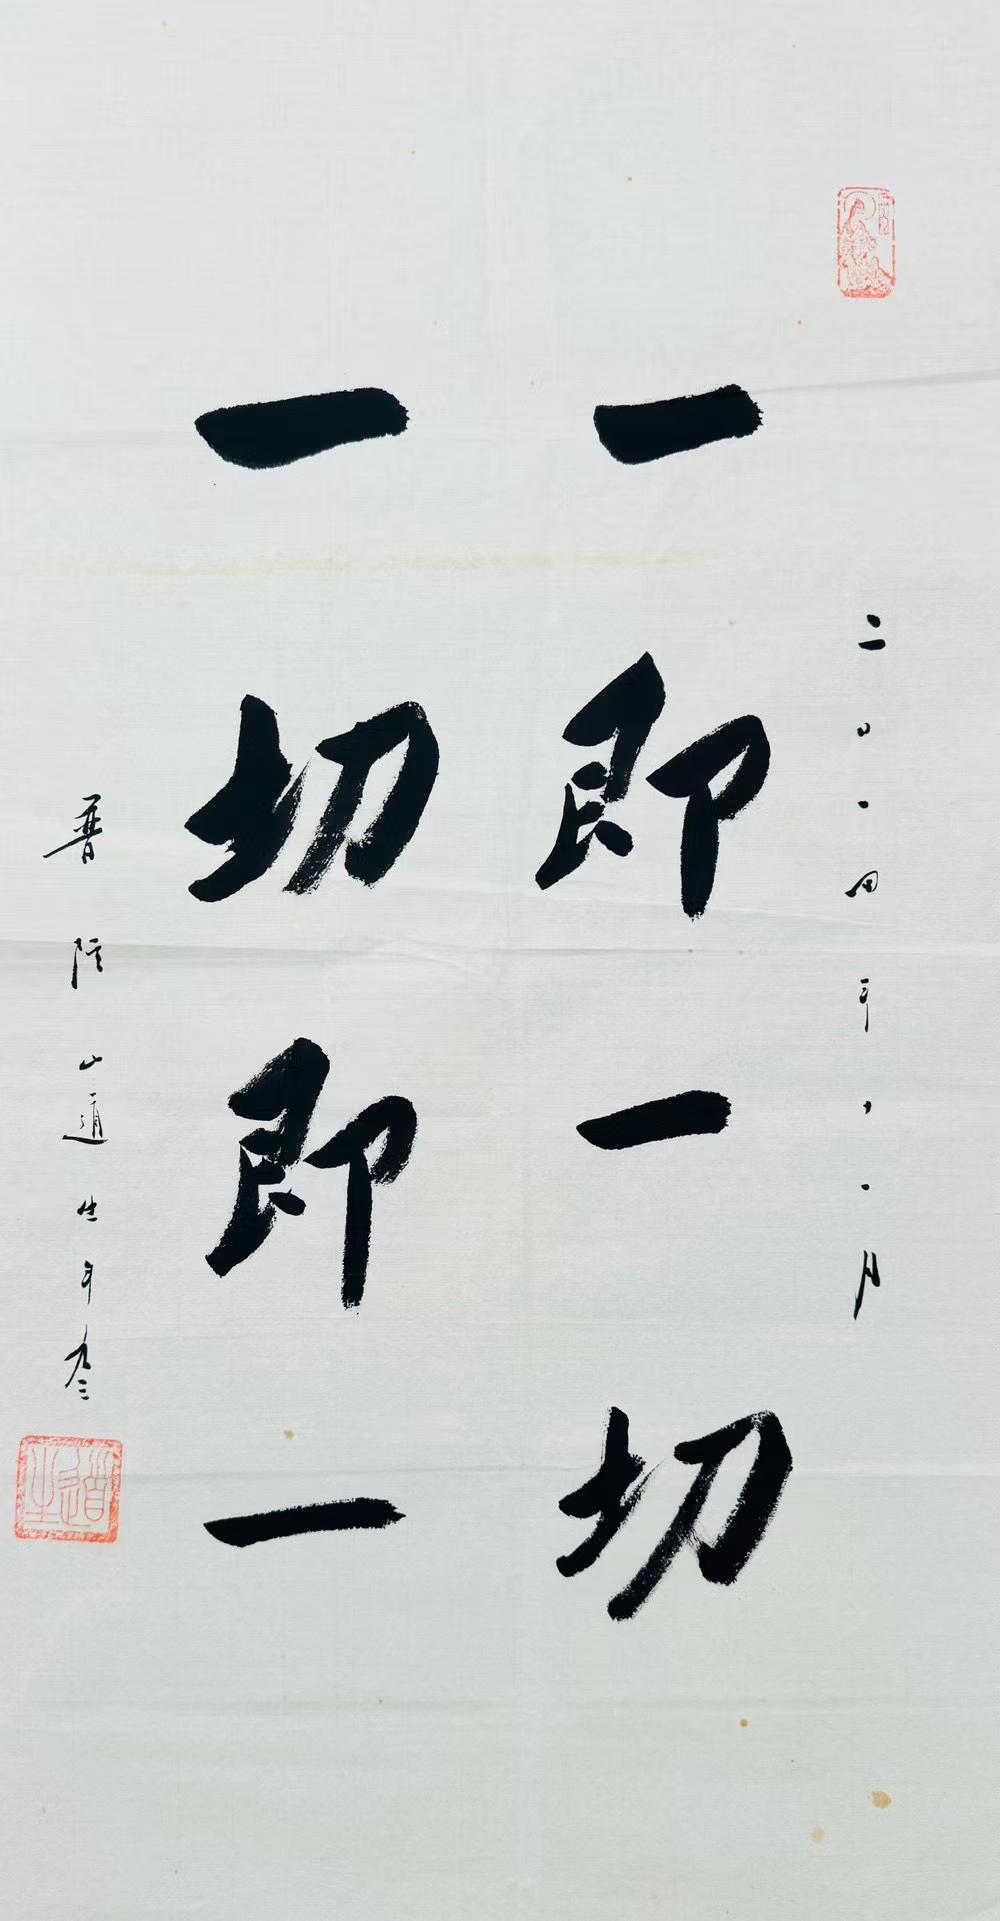 二〇一四年月
一即一切
一切即一
普陀山道生年九三
道生